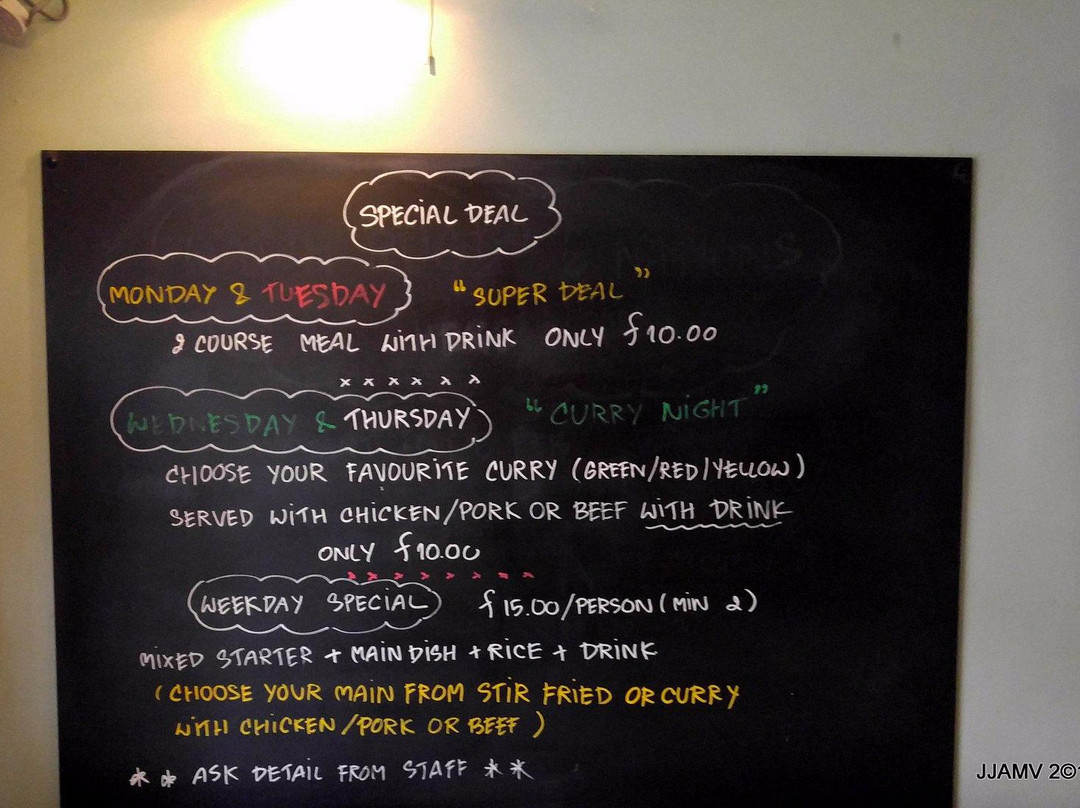 SPECIAL DEAL
MONDAY & TUESDAY "SUPER DEAL"
2 COURSE MEAL WITH DRINK ONLY £10.00
x x x x x x
WEDNESDAY & THURSDAY "CURRY NIGHT"
CHOOSE YOUR FAVOURITE CURRY (GREEN/RED/YELLOW)
SERVED WITH CHICKEN/PORK OR BEEF WITH DRINK
ONLY £10.00
x x x x x x x x
WEEKDAY SPECIAL £15.00/PERSON (MIN 2)
MIXED STARTER + MAIN DISH + RICE + DRINK
(CHOOSE YOUR MAIN FROM STIR FRIED OR CURRY
WITH CHICKEN/PORK OR BEEF)
** ASK DETAIL FROM STAFF **
JJAMV 2©1